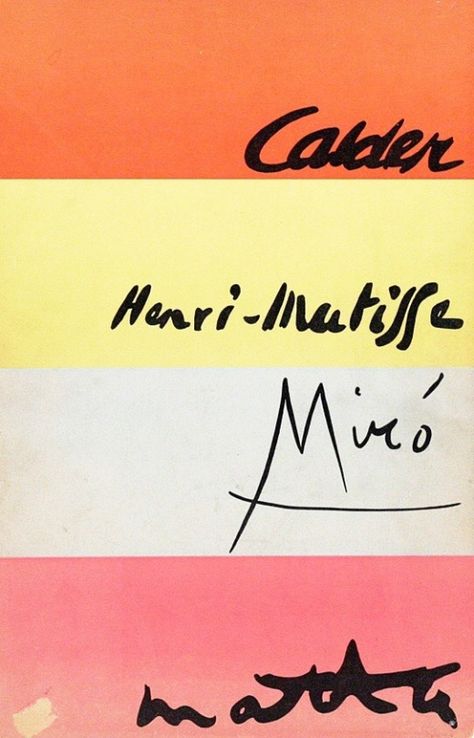 Calder
Henri-Matisse
Miró
matta